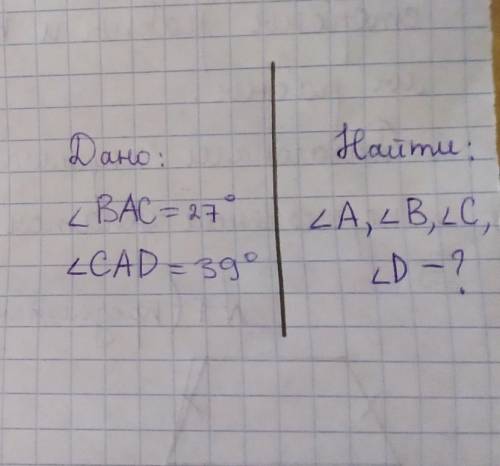 Дано:
∠BAC = 27°
∠CAD = 39°
Найти:
∠A, ∠B, ∠C,
∠D – ?